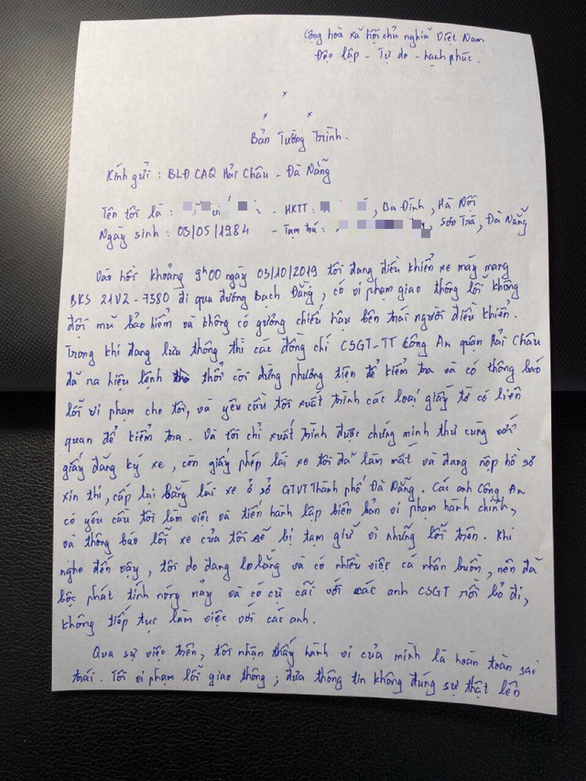 Cộng hoà xã hội chủ nghĩa Việt Nam
Độc lập - Tự do - hạnh phúc.
Bản Tường Trình.
Kính gửi : BLĐ CAQ Hải Châu - Đà Nẵng
Tên tôi là : - HKTT : , Ba Đình, Hà Nội
Ngày sinh : 03/05/1984 - Tạm trú : , Sơn Trà, Đà Nẵng
Vào hồi khoảng 9h00 ngày 03/10/2019 tôi đang điều khiển xe máy mang
BKS 21V2 - 7380 đi qua đường Bạch Đằng, có vi phạm giao thông lỗi không
đội mũ bảo hiểm và không có gương chiếu hậu bên trái người điều khiển.
Trong khi đang lưu thông thì các đồng chí CSGT-TT Công An quận Hải Châu
đã ra hiệu lệnh thổi còi dừng phương tiện để kiểm tra và có thông báo
lỗi vi phạm cho tôi, và yêu cầu tôi xuất trình các loại giấy tờ có liên
quan để kiểm tra. Và tôi chỉ xuất trình được chứng minh thư cùng với
giấy đăng ký xe, còn giấy phép lái xe tôi đã làm mất và đang nộp hồ sơ
xin thi, cấp lại bằng lái xe ở sở GTVT Thành phố Đà Nẵng. Các anh Công An
có yêu cầu tôi làm việc và tiến hành lập biên bản vi phạm hành chính,
và thông báo lỗi xe của tôi sẽ bị tạm giữ vì những lỗi trên. Khi
nghe đến vậy, tôi do đang lo lắng và có nhiều việc cá nhân buồn, nên đã
bộc phát tính nóng nảy và có cự cãi với các anh CSGT rồi bỏ đi,
không tiếp tục làm việc với các anh.
Qua sự việc trên, tôi nhận thấy hành vi của mình là hoàn toàn sai
trái. Tôi vi phạm lỗi giao thông; đưa thông tin không đúng sự thật lên